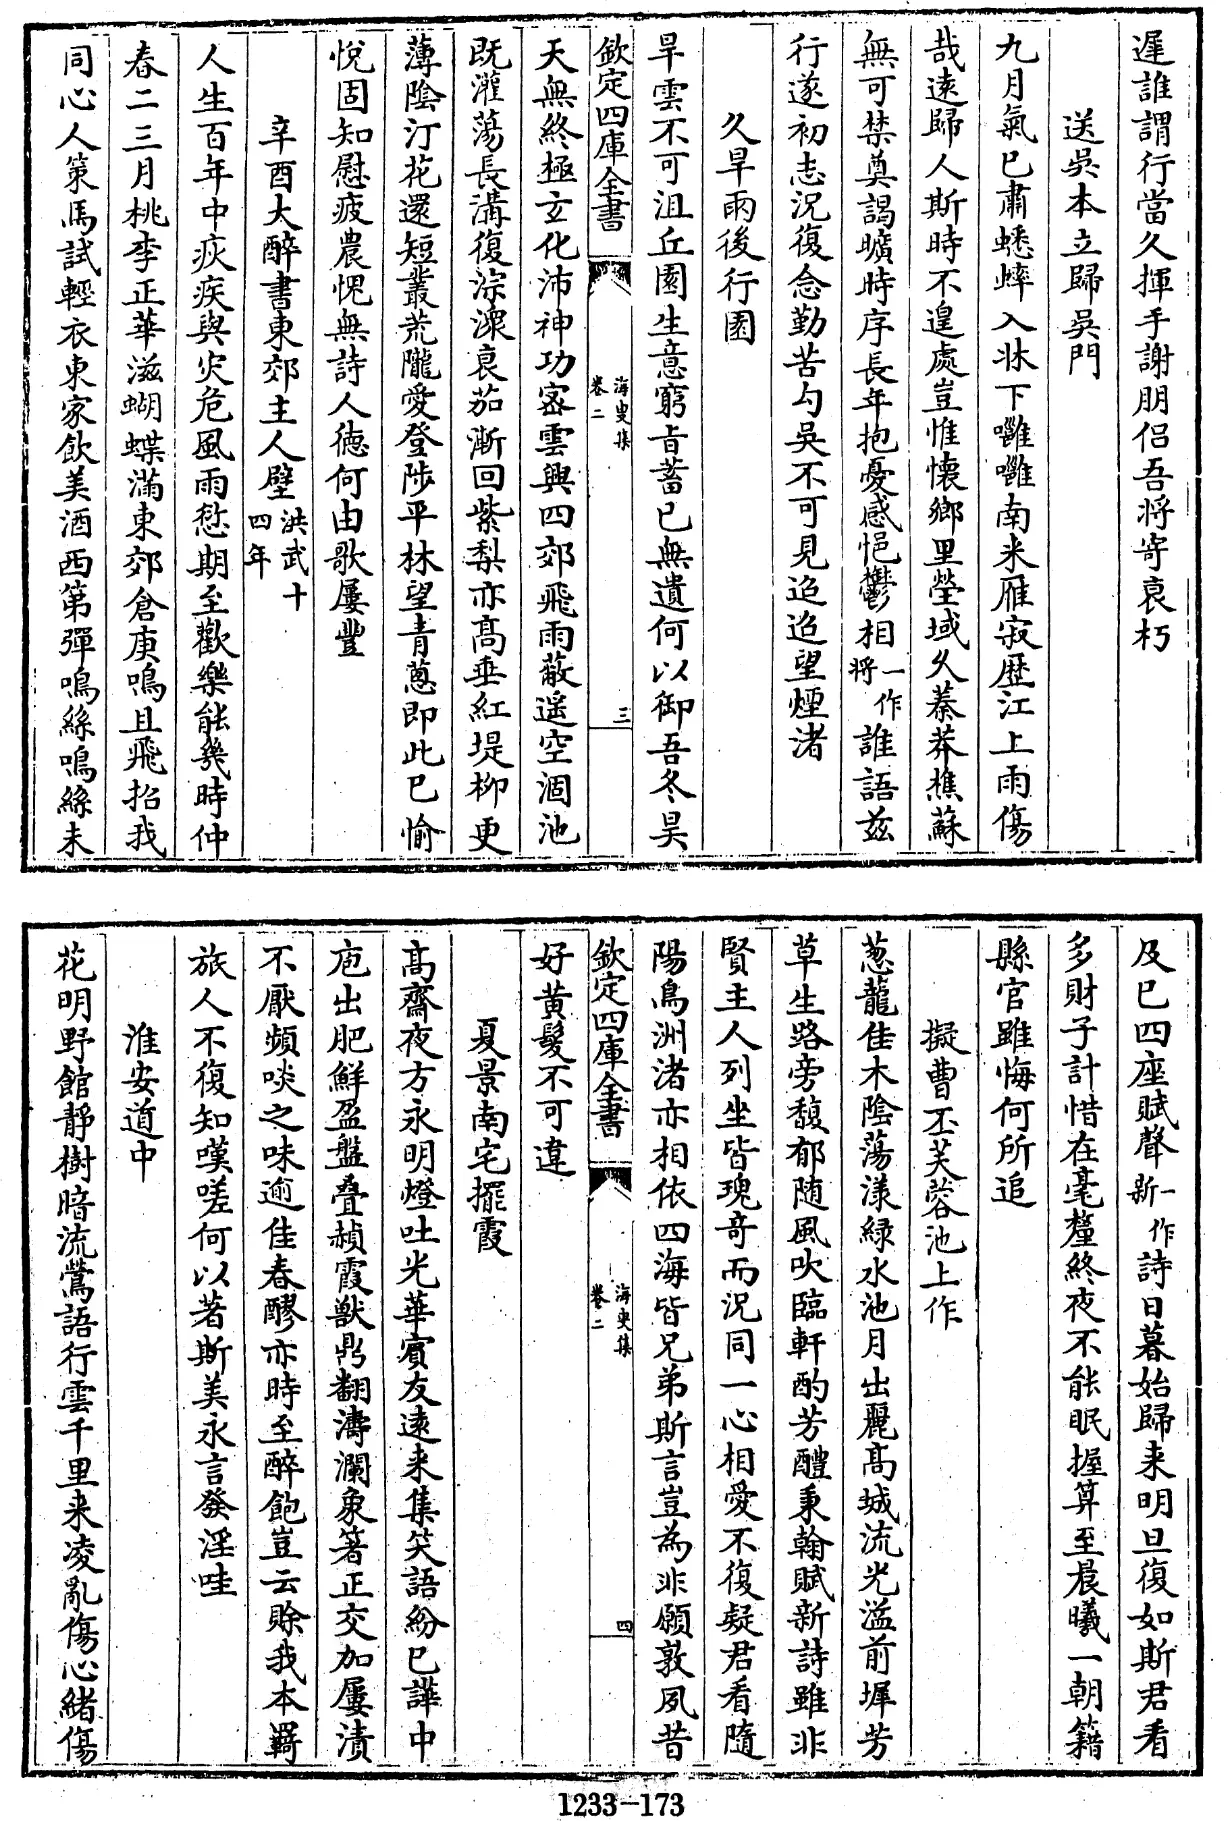 遲誰謂行當久揮手謝朋侣吾將寄哀朽
送吳本立歸吳門
九月氣已肅蟋蟀入牀下嗈嗈南来雁寂歴江上雨傷
哉逺歸人斯時不遑處豈惟懷鄉里塋域久蓁莽樵蘇
無可禁奠謁曠時序長年抱憂感悒鬱相一作將誰語兹
行遂初志況復念勤苦勾吳不可見迢迢望煙渚
久旱雨後行園
旱雲不可沮丘園生意窮㫖蓄已無遺何以御吾冬昊
欽定四庫全書
海叟集
卷二
三
天無終極玄化沛神功宻雲興四郊飛雨蔽遥空涸池
既灌蕩長溝復淙潨哀茄漸回紫梨亦髙垂紅堤柳更
薄陰汀花還短叢荒隴愛登陟平林望青蔥即此已愉
悅固知慰疲農愧無詩人徳何由歌屢豐
辛酉大醉書東郊主人壁洪武十四年
人生百年中疢疾與灾危風雨愆期至歡樂能幾時仲
春二三月桃李正華滋蝴蝶滿東郊倉庚鳴且飛招我
同心人策馬試輕衣東家飲美酒西第彈鳴絲鳴絲未
及已四座賦聲一作新詩日暮始歸来明旦復如斯君看
多財子計惜在毫釐終夜不能眠握算至晨曦一朝籍
縣官雖悔何所追
擬曹丕芙蓉池上作
葱蘢佳木陰蕩漾緑水池月出麗髙城流光溢前墀芳
草生路旁馥郁随風吹臨軒酌芳醴秉翰賦新詩雖非
賢主人列坐皆瑰竒而況同一心相愛不復疑君看隨
陽鳥洲渚亦相依四海皆兄弟斯言豈為非願敦夙昔
欽定四庫全書
海叟集
卷二
四
好黄髮不可違
夏景南宅擺霞
髙齋夜方永明燈吐光華賓友逺来集笑語紛已譁中
庖出肥鮮盈盤疊赬霞獸鼎翻濤瀾象箸正交加屢漬
不厭頻啖之味逾佳春醪亦時至醉飽豈云賒我本羇
旅人不復知嘆嗟何以著斯美永言發淫哇
淮安道中
花明野館靜樹暗流鶯語行雲千里来凌亂傷心緒傷
1233-173